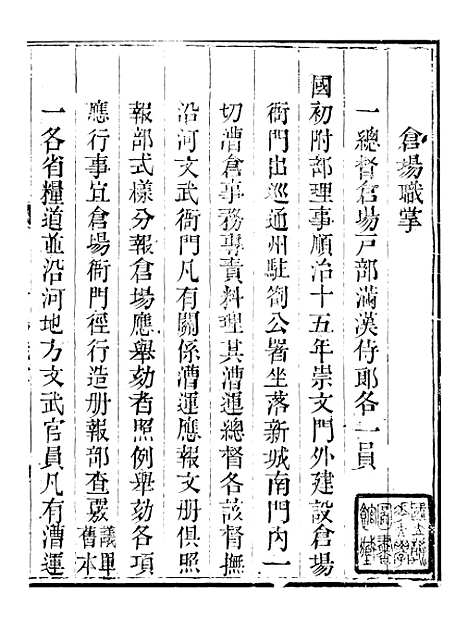 倉場職掌
一總督倉場戸部滿漢侍郎各一員
國初附部理事順治十五年崇文門外建設倉場
衙門出巡通州駐劄公署坐落新城南門内一
切漕倉事務專責料理其漕運總督各該督撫
沿河文武衙門凡有關係漕運應報文册俱照
報部式樣分報倉場應舉劾者照例舉劾各項
應行事宜倉場衙門徑行造册報部查覈議單舊本
一各省糧道並沿河地方文武官員凡有漕運